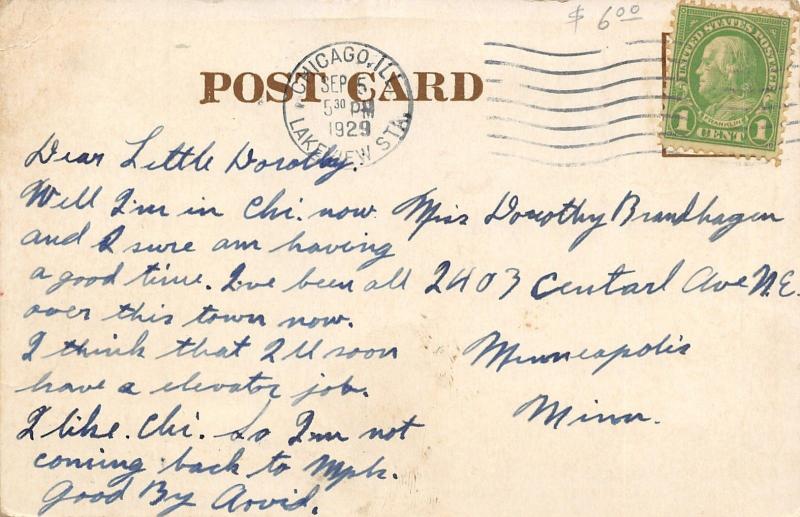 $ 6.00
POST CARD
CHICAGO, ILL.
SEP 5
5 30 PM
1929
LAKEVIEW STA.
UNITED STATES POSTAGE
FRANKLIN
1 CENT 1
Dear Little Dorothy.
Well I'm in Chi. now
and I sure am having
a good time. I've been all
over this town now.
I think that I'll soon
have a elevator job.
I like. Chi. so I'm not
coming back to Mpls.
Good By Arvid.
Miss Dorothy Brandhagen
2403 Centarl Ave N.E.
Minneapolis
Minn.